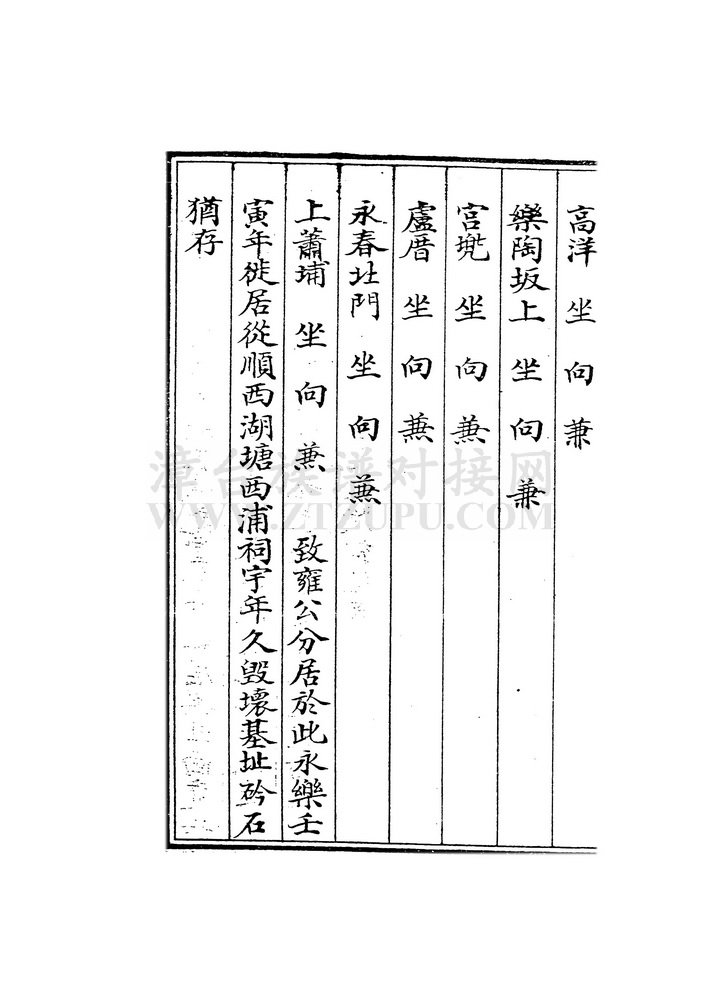 高洋 坐 向 兼
樂陶坂上 坐 向 兼
宫兠 坐 向 兼
盧厝 坐 向 兼
永春北門 坐 向 兼
上蕭埔 坐 向 兼 致雍公分居於此永樂壬
寅年徙居從順西湖塘西浦祠宇年久毁壞基址矜石
猶存
漳台族谱对接网
WWW.ZTZUPU.COM